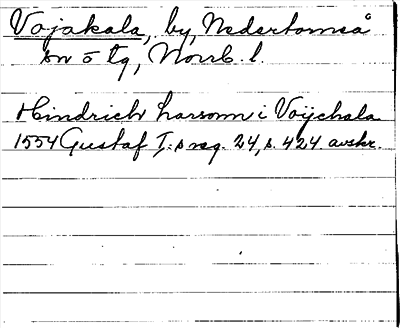 Vojakala, by, Nedertorneå
sn o tg, Norrb. l.
Hindrich Larsonn i Voijchala
1554 Gustaf I:s reg. 24, s. 424 avskr.